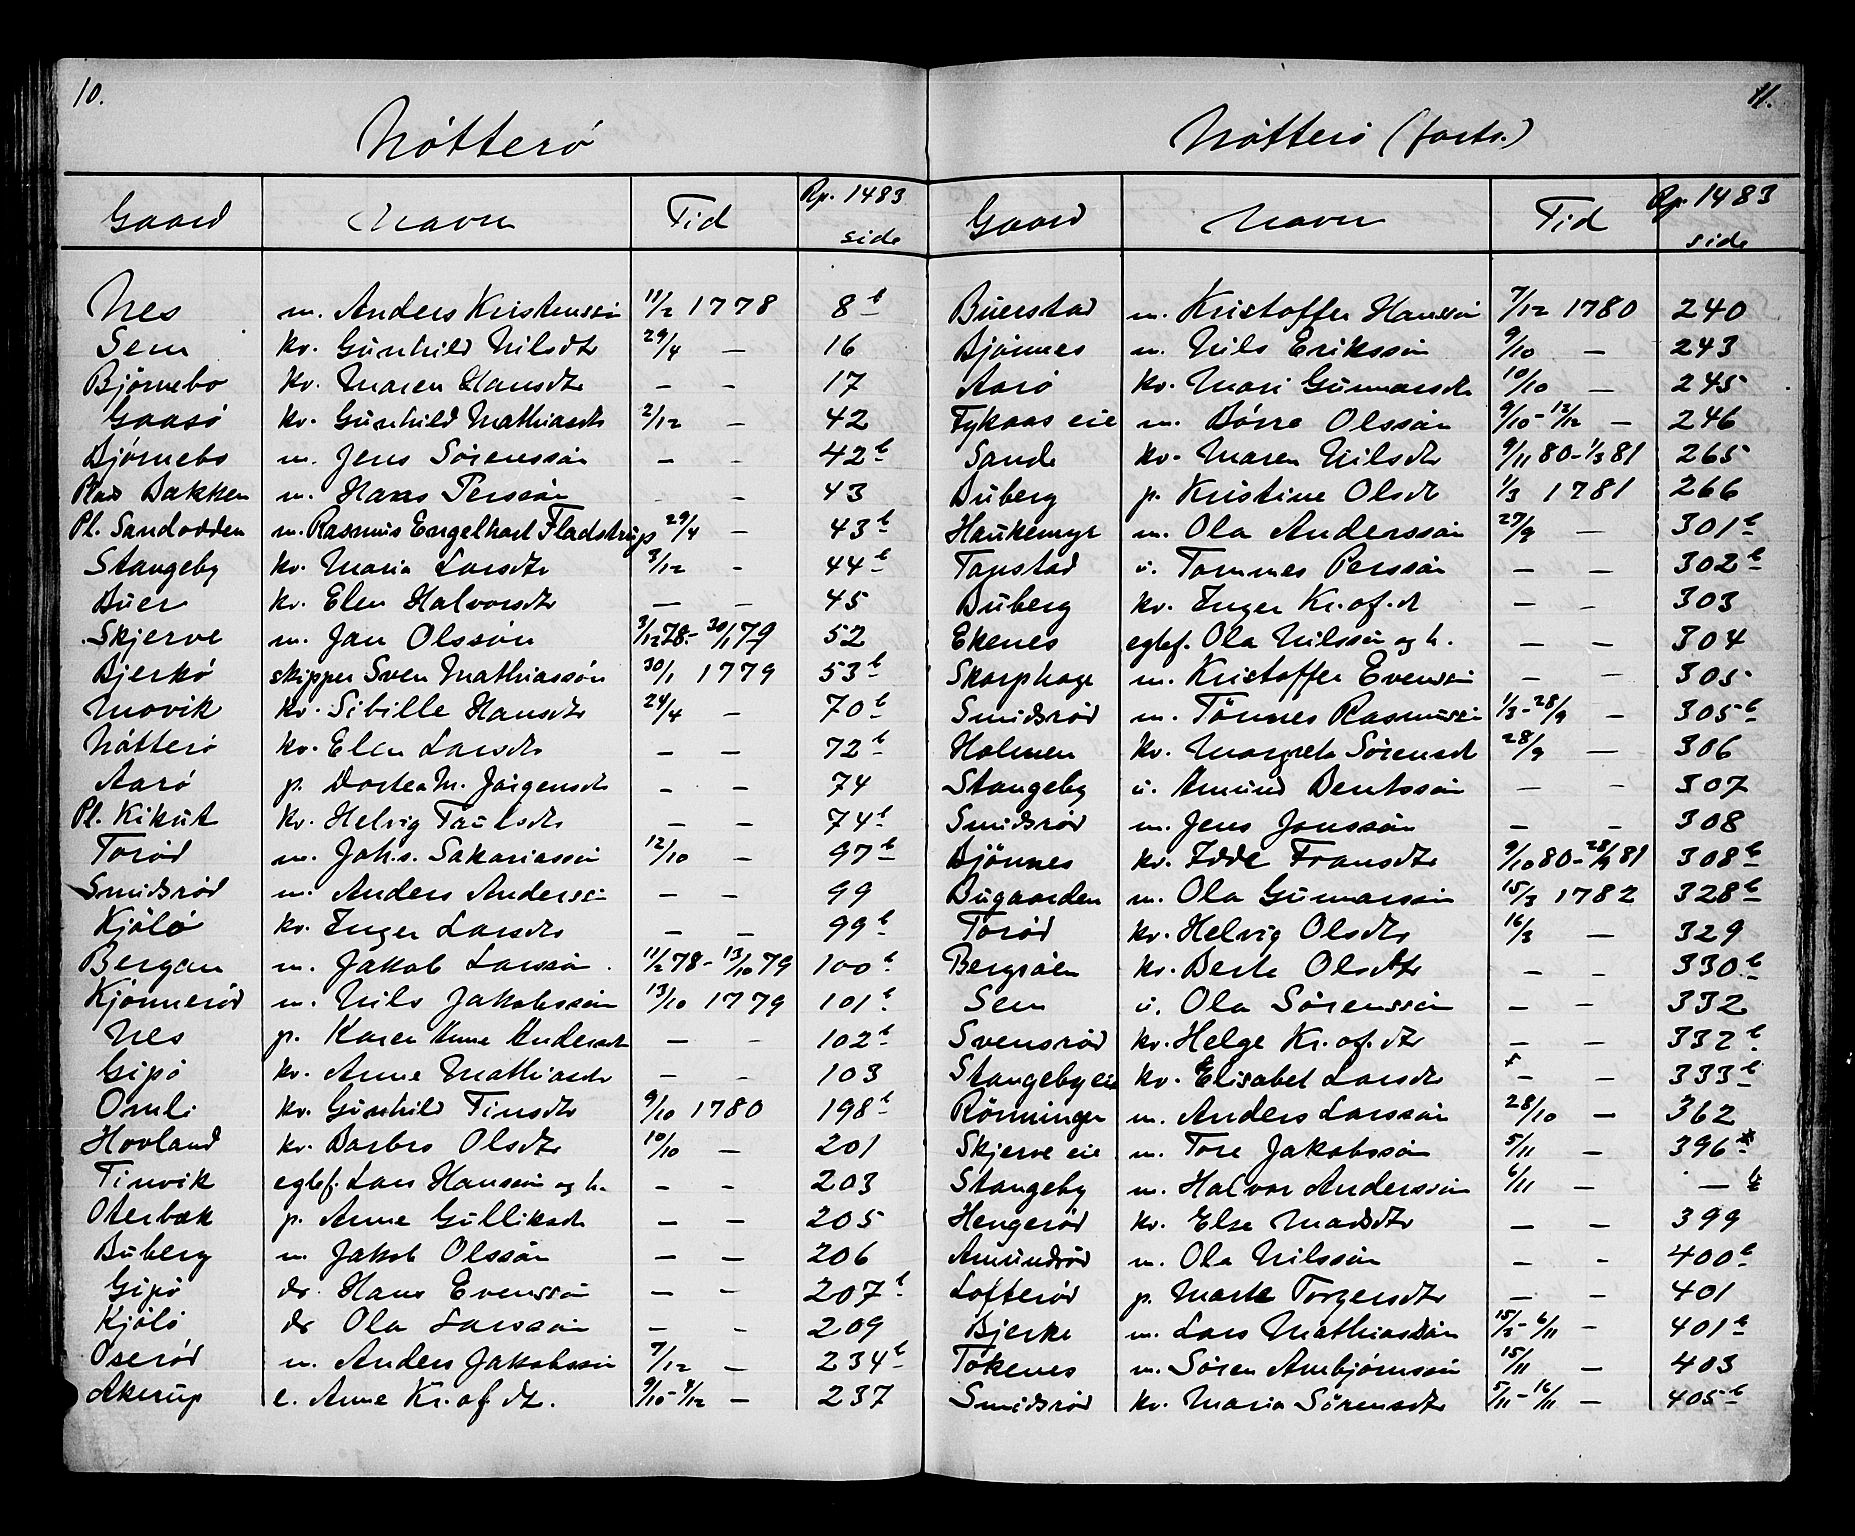 10.
Nötterö
Gaard Navn Tid Rp. 1483 side
Nes m. Anders Kristenssön 11/2 1778 8 b
Sem kv. Gunhild Nilsdtr 29/4 — 16
Björnebo kv. Maren Hansdtr — — 17
Gaasö kv. Gunhild Mathiasdtr 2/12 — 42
Björnebo m. Jens Sörenssön — — 42 b
Plads Bakken m. Hans Perssön — — 43
Pl. Sandodden m. Rasmus Engelhart Fladstrup 29/4 — 43 b
Stangeby kv. Maria Larsdtr 3/12 — 44 b
Buer kv. Elen Halvorsdtr — — 45
Skjerve m. Jan Olssön 3/12 78 - 30/1 79 52
Bjerkö skipper Sven Mathiassön 30/1 1779 53 b
Movik kv. Sibille Hansdtr 24/4 — 70 b
Nötterö kv. Elen Larsdtr — — 72 b
Aarö p. Dortea M. Jörgensdtr — — 74
Pl. Kikut kv. Helvig Paulsdtr — — 74 b
Toröd m. Joh.s. Sakariassön 12/10 — 97 b
Smidsröd m. Anders Anderssön — — 99
Kjölö kv. Inger Larsdtr — — 99 b
Bergan m. Jakob Larssön. 11/2 78 - 13/10 79 100 b
Kjönneröd m. Nils Jakobssön 13/10 1779 101 b
Nes p. Karen Anne Andersdtr — — 102 b
Gipö kv. Anne Mathiasdtr — — 103
Omli kv. Gunhild Finsdtr 9/10 1780 198 b
Hovland kv. Barbro Olsdtr 10/10 — 201
Tinvik egtef. Lars Hanssön og h. — — 203
Oterbæk p. Anne Gulliksdtr — — 205
Buberg m. Jakob Olssön — — 206
Gipö dr. Hans Evenssön — — 207 b
Kjölö dr Ola Larssön — — 209
Oseröd m. Anders Jakobssön 7/12 — 234 b
Akerup e. Anne Kr.of.dtr. 9/10 - 9/12 — 237
11.
Nötterö (forts.)
Gaard Navn Tid Rp. 1483 side
Buerstad m. Kristoffer Hanssön 7/12 1780 240
Bjönnes m. Nils Erikssön 9/10 — 243
Aarö kv. Mari Gunnarsdtr 10/10 — 245
Tykaas eie m. Börre Olssön 9/10 - 12/12 — 246
Sande kv. Maren Nilsdtr 9/11 80 - 1/3 81 265
Buberg p. Kristine Olsdtr 1/3 1781 266
Haukemyr m. Ola Anderssön 27/9 — 301 b
Tanstad u. Tommes Perssön — — 302 b
Buberg kv. Inger Kr.of.d — — 303
Ekenes egtef. Ola Nilssön og h. — — 304
Skarphage m. Kristoffer Evenssön — — 305
Smidsröd m. Tönnes Rasmussön 1/3 - 28/9 — 305 b
Holmen kv. Margrete Sörensdt 28/9 — 306
Stangeby u. Amund Bentssön — — 307
Smidsröd m. Jens Jonssön — — 308
Bjönnes kv. Edde Fransdtr 9/10 80 - 28/9 81 308 b
Bugaarden m. Ola Gunnarssön 15/3 1782 328 b
Toröd kv. Helvig Olsdtr 16/3 — 329
Bergsöen kv. Berte Olsdtr — — 330 b
Sem u. Ola Sörenssön — — 332
Svensröd kv. Helge Kr.of.dtr — — 332 b
Stangeby eie kv. Elisabet Larsdtr — — 333 b
Rönningen m. Anders Larssön 28/10 — 362
Skjerve eie m. Tore Jakobssön 5/11 — 396*
Stangeby m. Halvor Anderssön 6/11 — — b
Hengeröd kv. Else Madsdtr — — 399
Amundröd m. Ola Nilssön — — 400 b
Lofteröd p. Marte Torgersdtr — — 401
Bjerke m. Lars Mathiassön 15/3 - 6/11 — 401 b
Tokenes m. Sören Arnbjörnssön 15/11 — 403
Smidsröd kv. Maria Sörensdtr 5/11 - 16/11 — 405 b